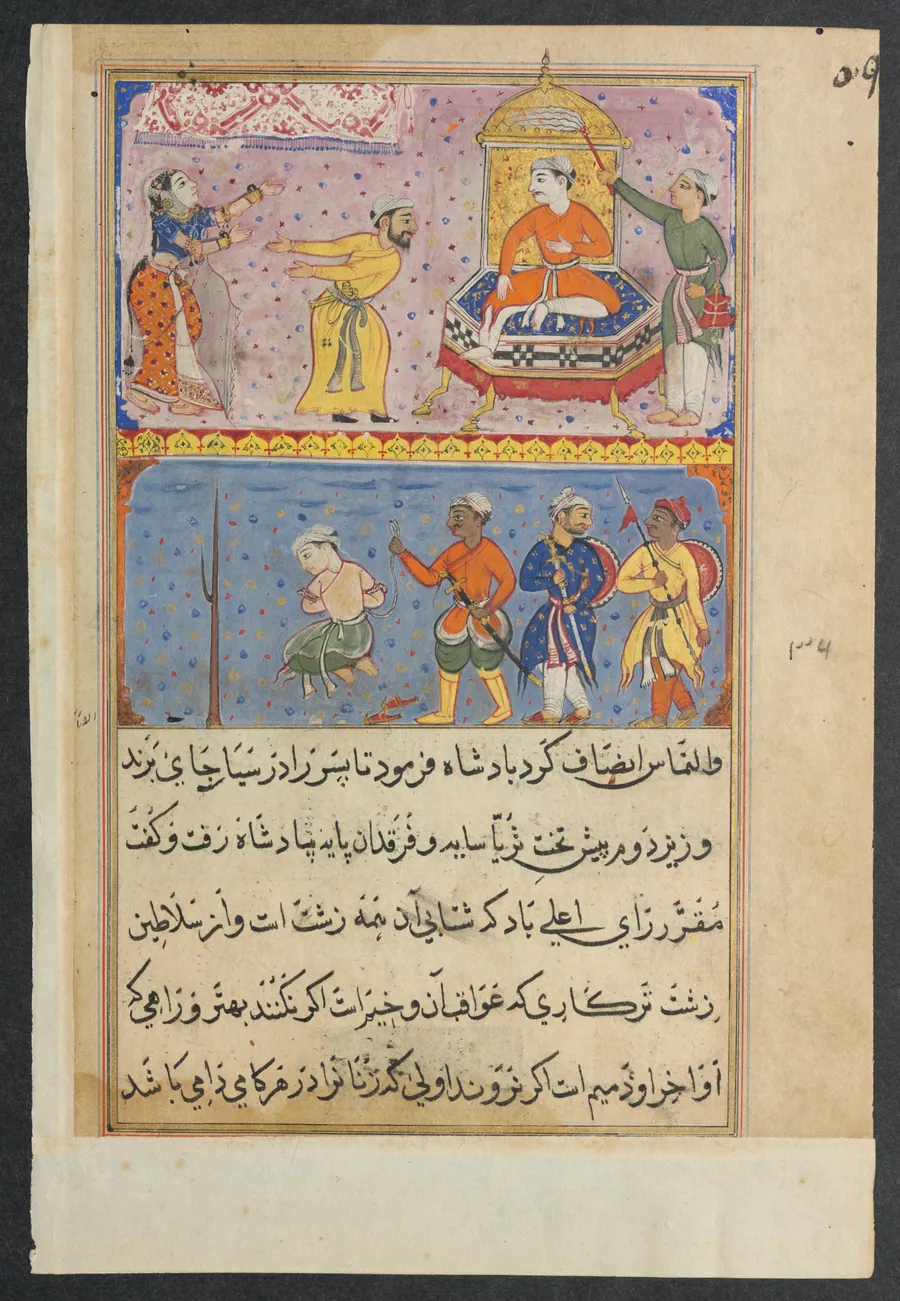 والتماس انصاف کرد بادشاه فرمود تا پسر را در سیاسجای برند
وزیر دوم پیش تخت ثریا سایه و فرقدان پایه بادشاه رفت و گفت
مقرر رای اعلی باد که شتابی آن همه زشت است و از سلاطین
زشت تر کاری که عواقب آن وخیر است اکر نکنند بهتر و راهی که
اواخر او ذمیم است اکر نروند اولی که زنانرا در هر کامی دامی باشد